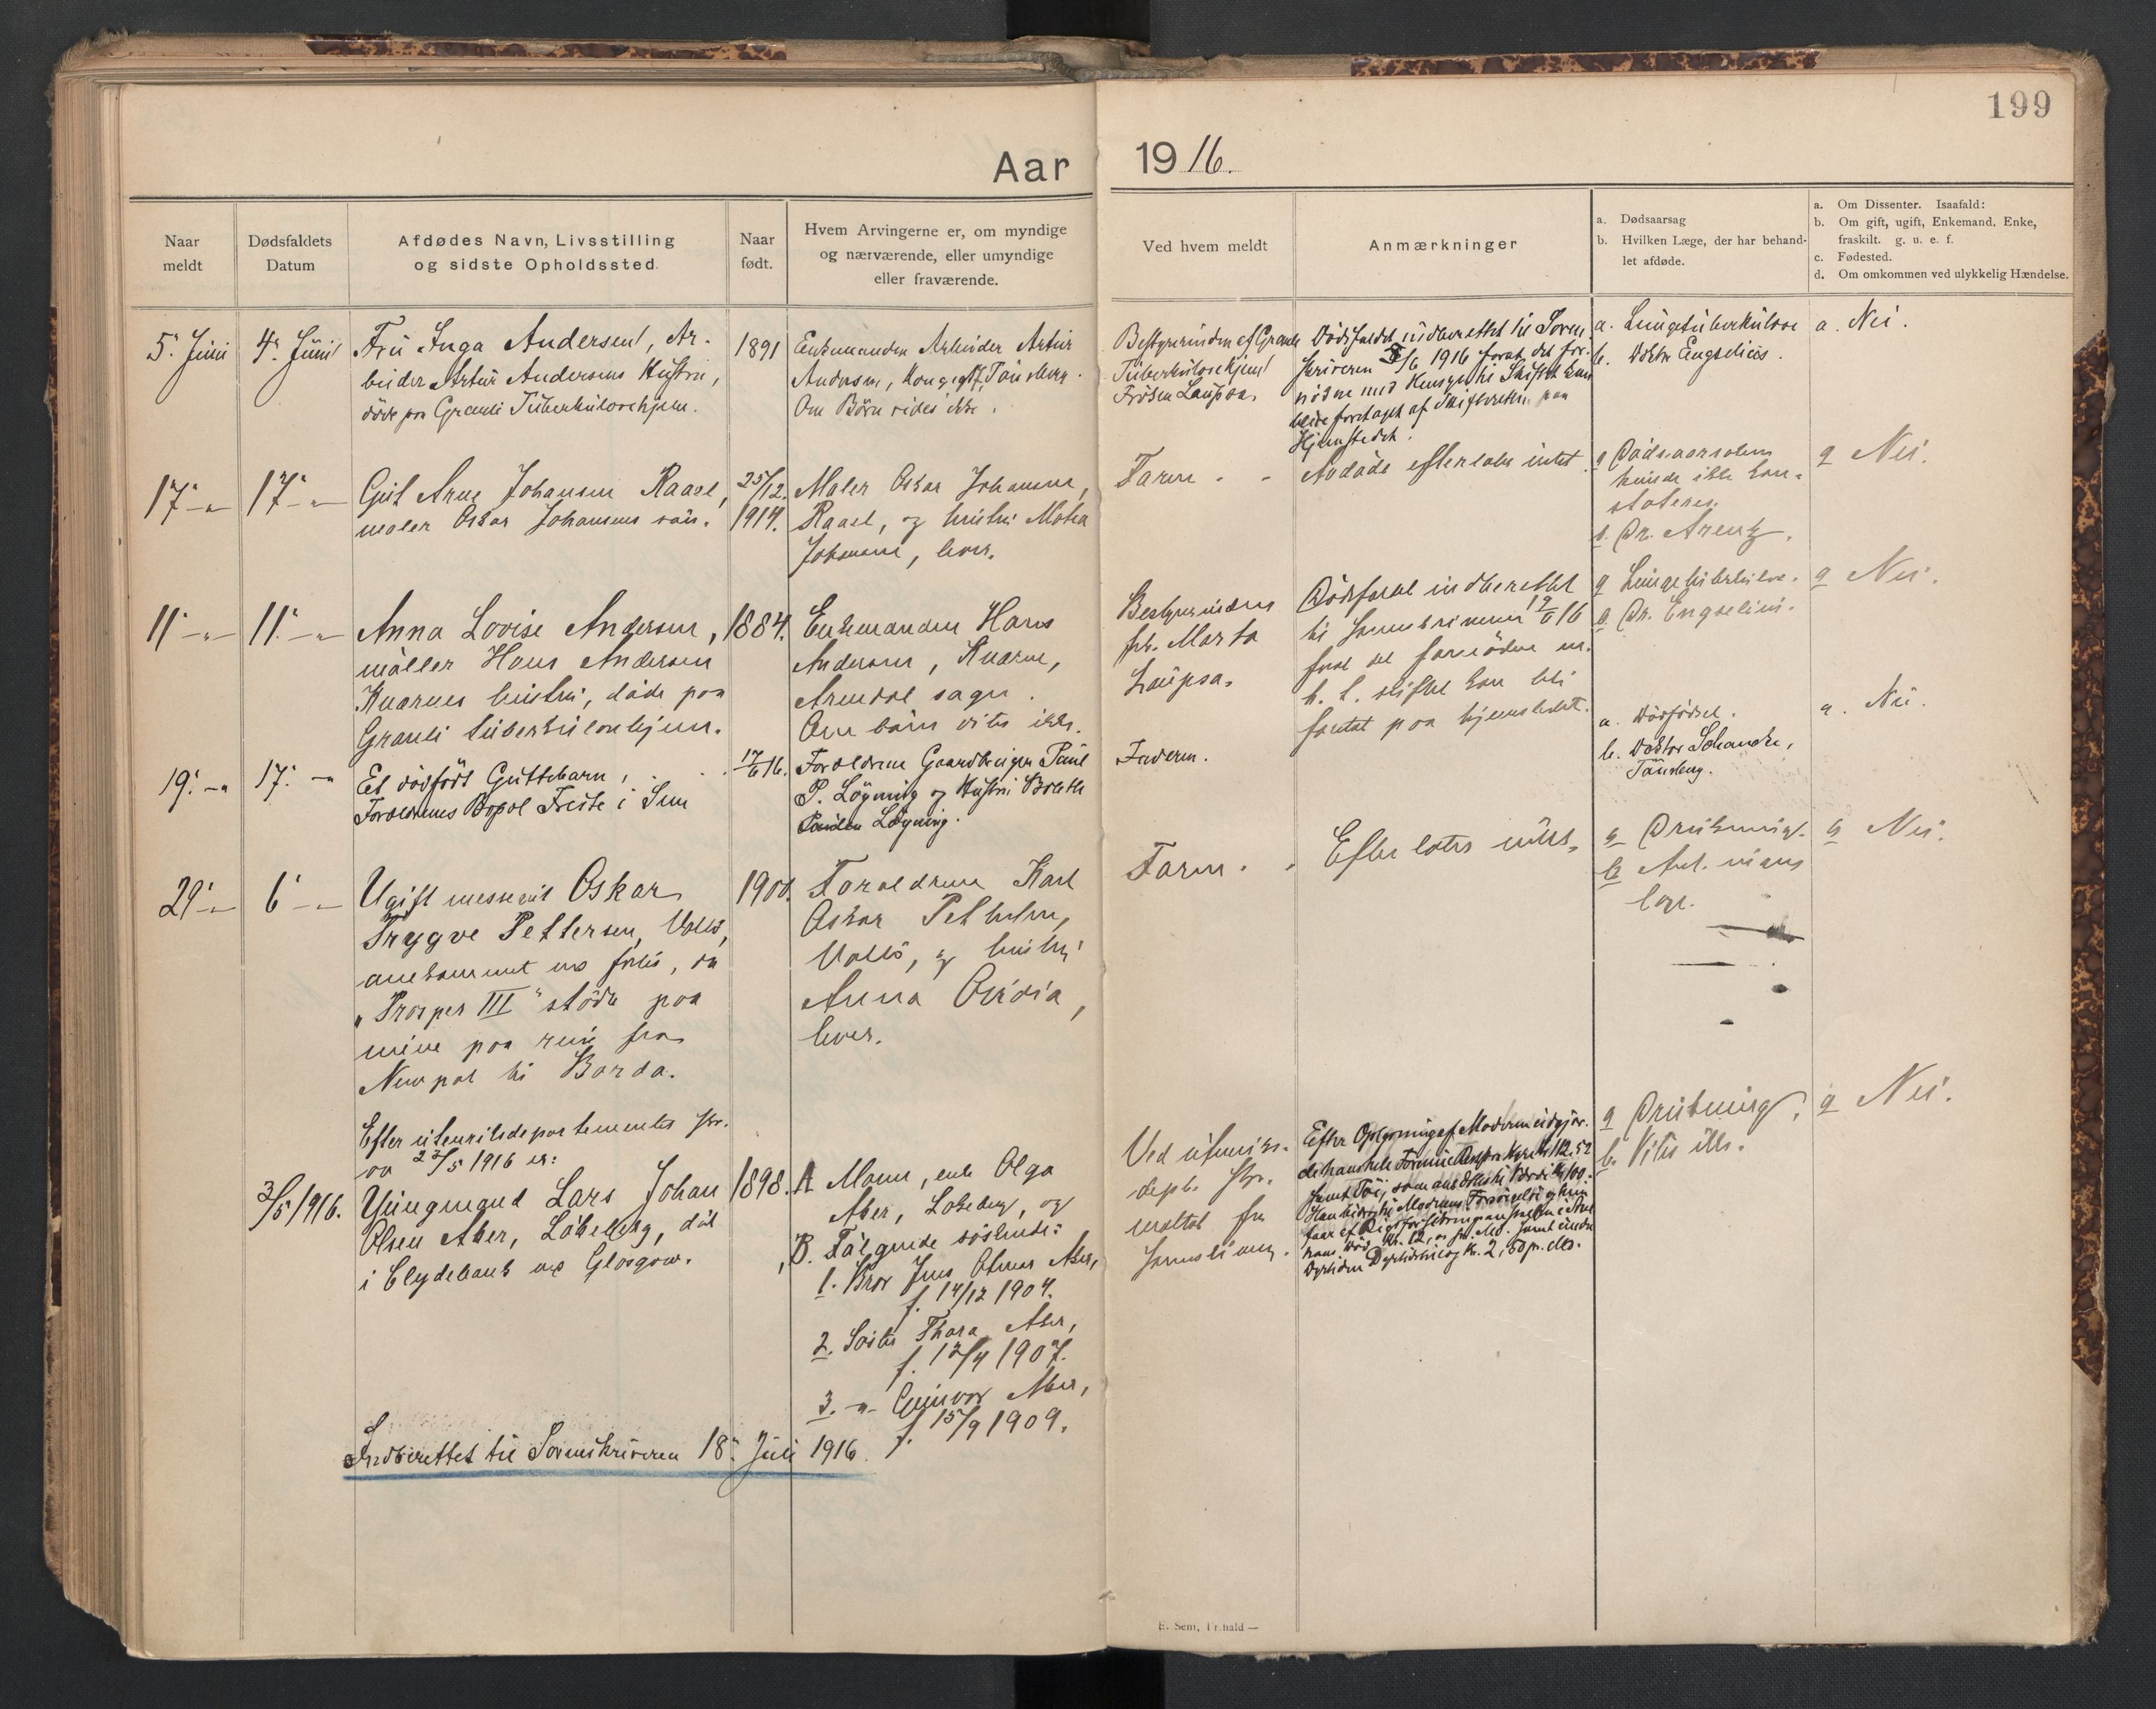 199
Aar 1916.
Naar meldt
Dødsfaldets Datum
Afdødes Navn, Livsstilling og sidste Opholdssted.
Naar født.
Hvem Arvingerne er, om myndige og nærværende, eller umyndige eller fraværende.
Ved hvem meldt
Anmærkninger
a. Dødsaarsag
b. Hvilken Læge, der har behandlet afdøde.
a. Om Dissenter. Isaafald:
b. Om gift, ugift, Enkemand, Enke, fraskilt. g. u. e. f.
c. Fødested.
d. Om omkommen ved ulykkelig Hændelse.
5. Juni
4. Juni
Fru Inga Andersen, Ar-
beider Artur Andersens Hustru,
døde paa Grauli Tuberkulosehjem.
1891
Enkemanden Arbeider Artur
Andersen, Tønsberg.
Om Børn vides ikke.
Bestyrerinden af Grauli
Tuberkulosehjem
Frøken Laupsa.
Dødsfaldet indberettet til Soren-
skriveren 5/6 1916 forat det for-
nødne med Hensyn til Skiftet kan
blive foretaget af Skifteretten paa
Hjemstedet.
a. Lungetuberkulose
b. Doktor Engselius.
a. Nei.
17 -"-
17 -"-
Gut Arne Johansen Raael,
maler Oskar Johansens søn.
25/12.
1914.
Maler Oskar Johansen,
Raael, og hustru
Johansen, lever.
Faren.
Avdøde efterlater intet.
a Dødsaarsaken
kunde ikke kon-
stateres.
b. Dr. Arentz.
a Nei.
11 -"-
11 -"-
Anna Lovise Andersen,
møller Hans Andersen
Kuarnes hustru, døde paa
Grauli tuberkulosehjem.
1884.
Enkemanden Hans
Andersen,
Arendal sogn.
Om børn vites ikke.
Bestyrerinden
frk. Marta
Laupsa.
Dødsfald indberettet
til sorenskriveren 19/6 16
forat det fornødne m.
h. t. skiftet kan bli
foretat paa hjemstedet.
a Lungetuberkulose.
b Dr. Engselius.
a Nei.
19. -"
17. -"
Et dødfødt Guttebarn,
Forældrenes Bopæl Freste i Sem
17/6 16.
Forældrene Gaardbruger Paul
P. Løgning og Hustru
Løgning.
Faderen.
a. Dødfødsel.
b. Doktor Schancke,
Tønsberg.
a. Nei.
29 -"-
6 -"-
Ugift messegut Oskar
Trygve Pettersen, Vallø,
omkommet ved forlis, da
"Prosper III" stødte paa
mine paa reise fra
til Barda.
1900.
Forældrene Karl
Oskar Pettersen,
Vallø, og hustru
Anna
lever.
Faren.
Efterlater intet.
a Drukning.
b Ant. ingen
læge.
a Nei.
Efter utenriksdepartementets skr.
av 23/5 1916 er:
3/5 1916.
Yungmand Lars Johan
Olsen Aker, Løkeberg, død
i Clydebank ved Glasgow.
1898.
A Moren, enke Olga
Aker, Løkeberg, og
B. Følgende søskende:
1. Bror Jens Aker,
f. 14/12 1904.
2. Søster Thora Aker,
f. 12/4 1907.
3. -"- Gunvor Aker,
f. 15/9 1909.
Ved utenriks-
dept. skr.
meldt fra
Efter Opgivning af Moderen
samt Tøi, som
a Drukning.
b. Vites ikke.
a Nei.
Indberettet til Sorenskriveren 18. Juli 1916
E. Sem, Fr.hald —